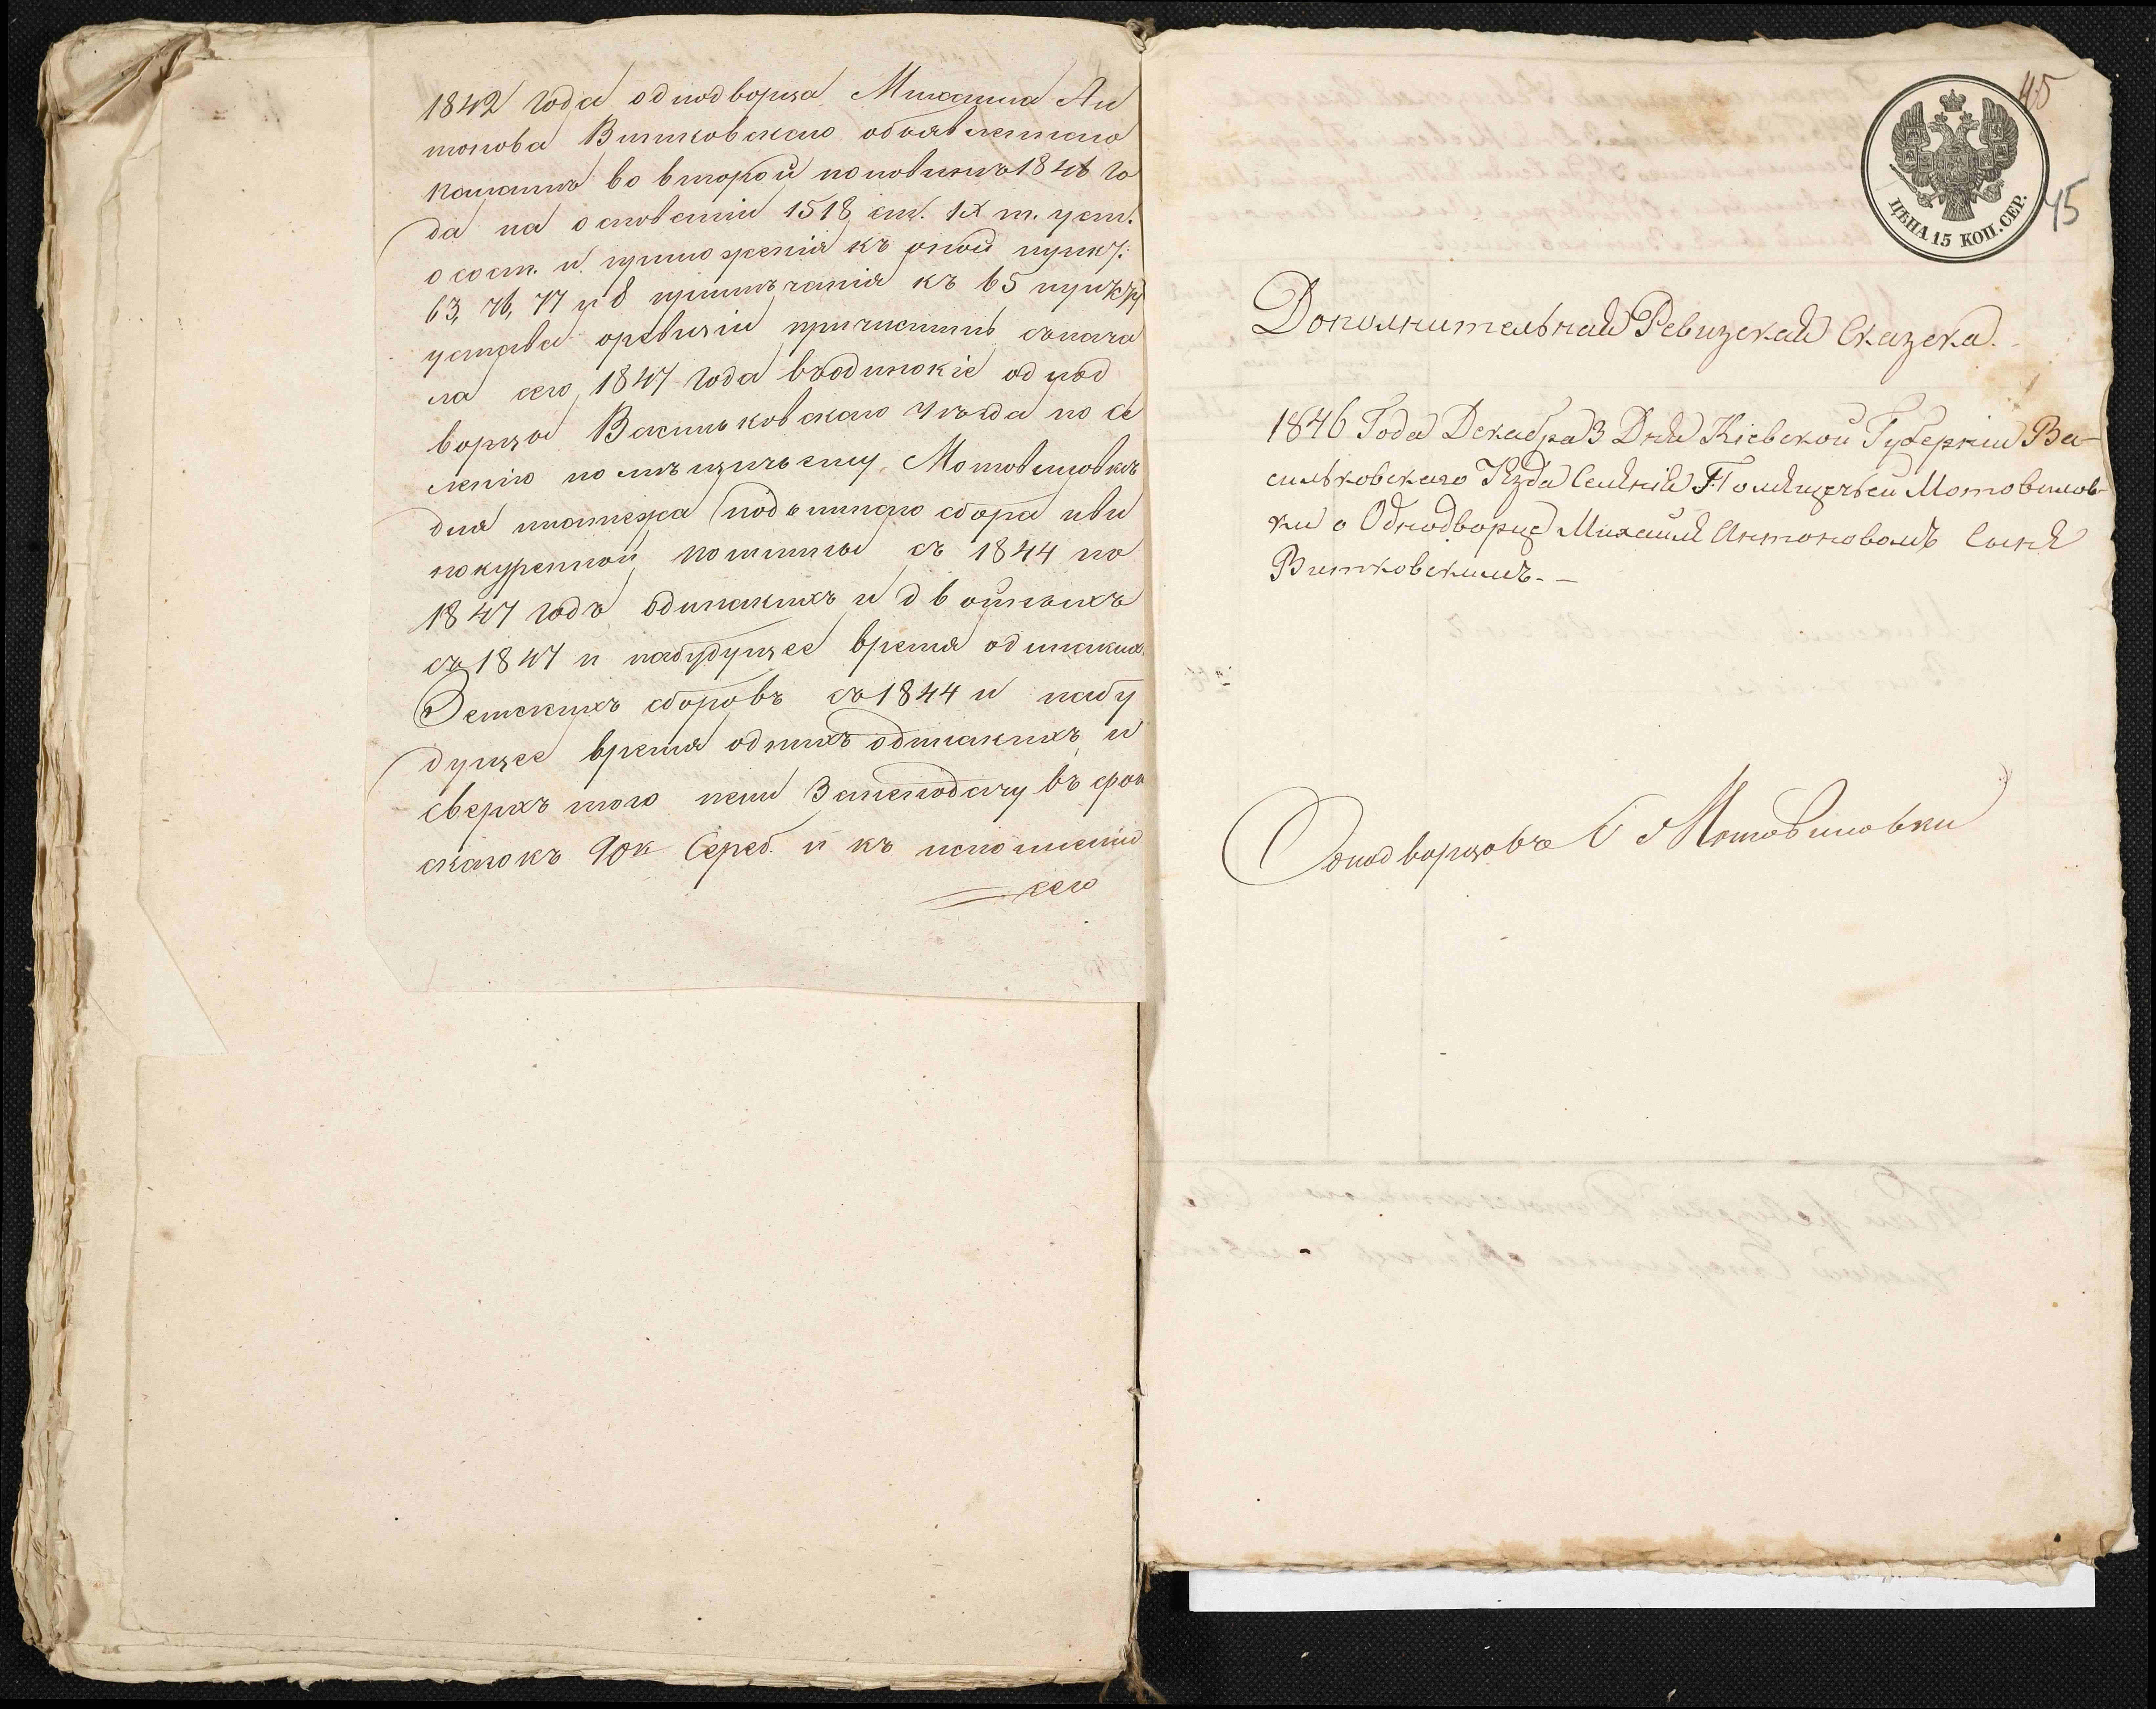 1842 года однодворца Михаила Ан
тонова Витковскаго объявленнаго
палатѣ во второй половинѣ 1846 го
да на основаніи 1518 ст. IX т. уст.
о сост. и приложенія къ оной пунк:
63, 76, 77 и 8 примѣчанія къ 65 пункту
устава о ревизіи причислить съ нача
ла сего 1847 года въ одинокіе однод
ворцы Васильковскаго уѣзда по се
ленію помѣщичьему Мотовиловкѣ
для платежа подымнаго сбора и ви
нокуренной пошлины съ 1844 по
1847 годъ одинакихъ и двойныхъ
съ 1847 и набудущее время одинаких
Земскихъ сборовъ съ 1844 и набу
дущее время однихъ одинакихъ и
сверхъ того пени За неподачу въ срок
сказокъ 90 к Сереб. и къ исполненію
сего
45
ЦѢНА 15 КОП. СЕР.
45
Дополнительная Ревизская Сказска.
1846 Года Декабра 3 Дня Кіевской Губерніи Ва-
сильковскаго Уѣзда Селенія Помѣщечьей Мотовилов-
ки о Однодворце Михаилѣ Антоновомъ Сынѣ
Витковскимъ. —
Однодворцовъ С Мотовиловки